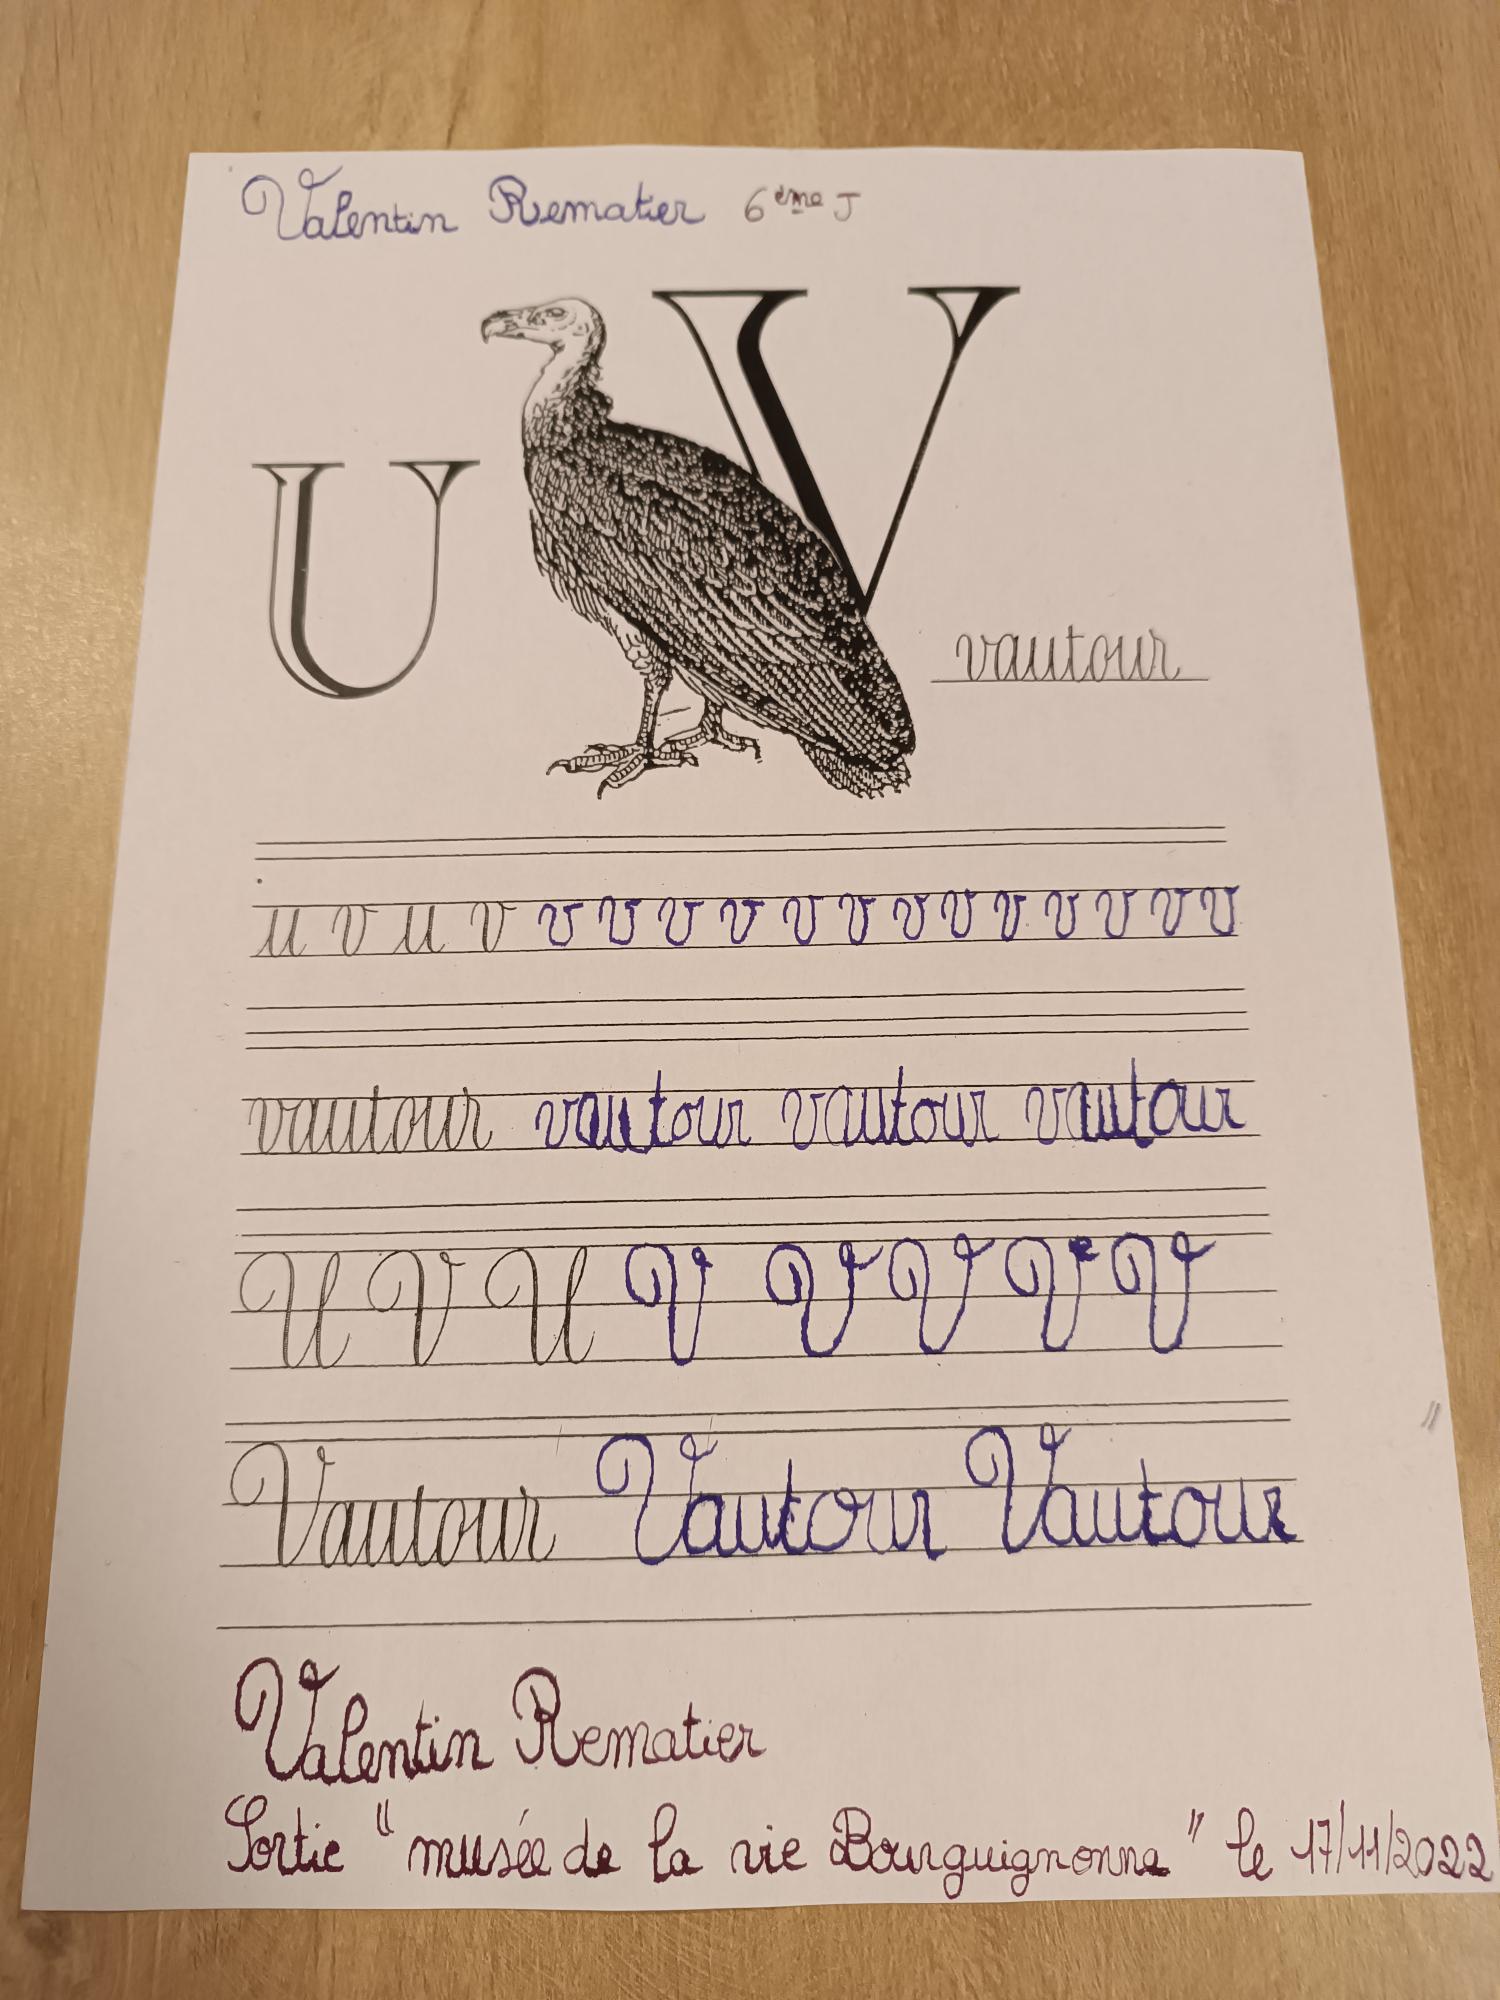 Valentin Rematier 6ème J
U V
vautour
u v u v v v v v v v v v v v v v v
vautour vautour vautour vautour
U V U V V V V V
Vautour Vautour Vautour
Valentin Rematier
Sortie "musée de la vie Bourguignonne" le 17/11/2022